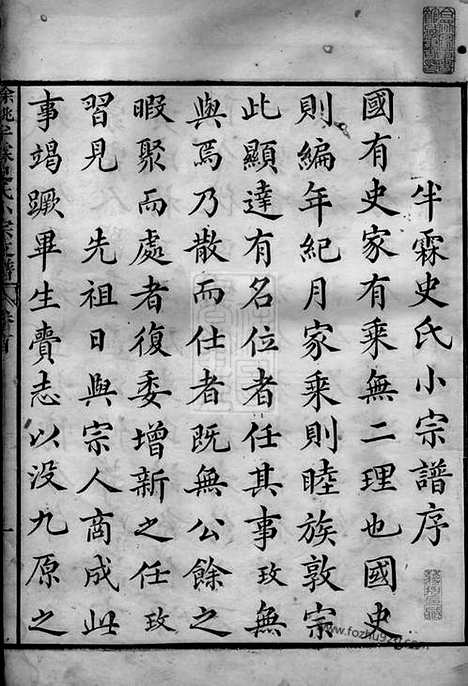 半霖史氏小宗譜序
國有史家有乘無二理也國史
則編年紀月家乘則睦族敦宗
此顯達有名位者任其事攷無
與焉乃散而仕者既無公餘之
暇聚而處者復委增新之任攷
習見 先祖日與宗人商成此
事竭蹶畢生賷志以没九原之
餘姚半霖史氏小宗支譜 卷首 一
www.fozhu920.com